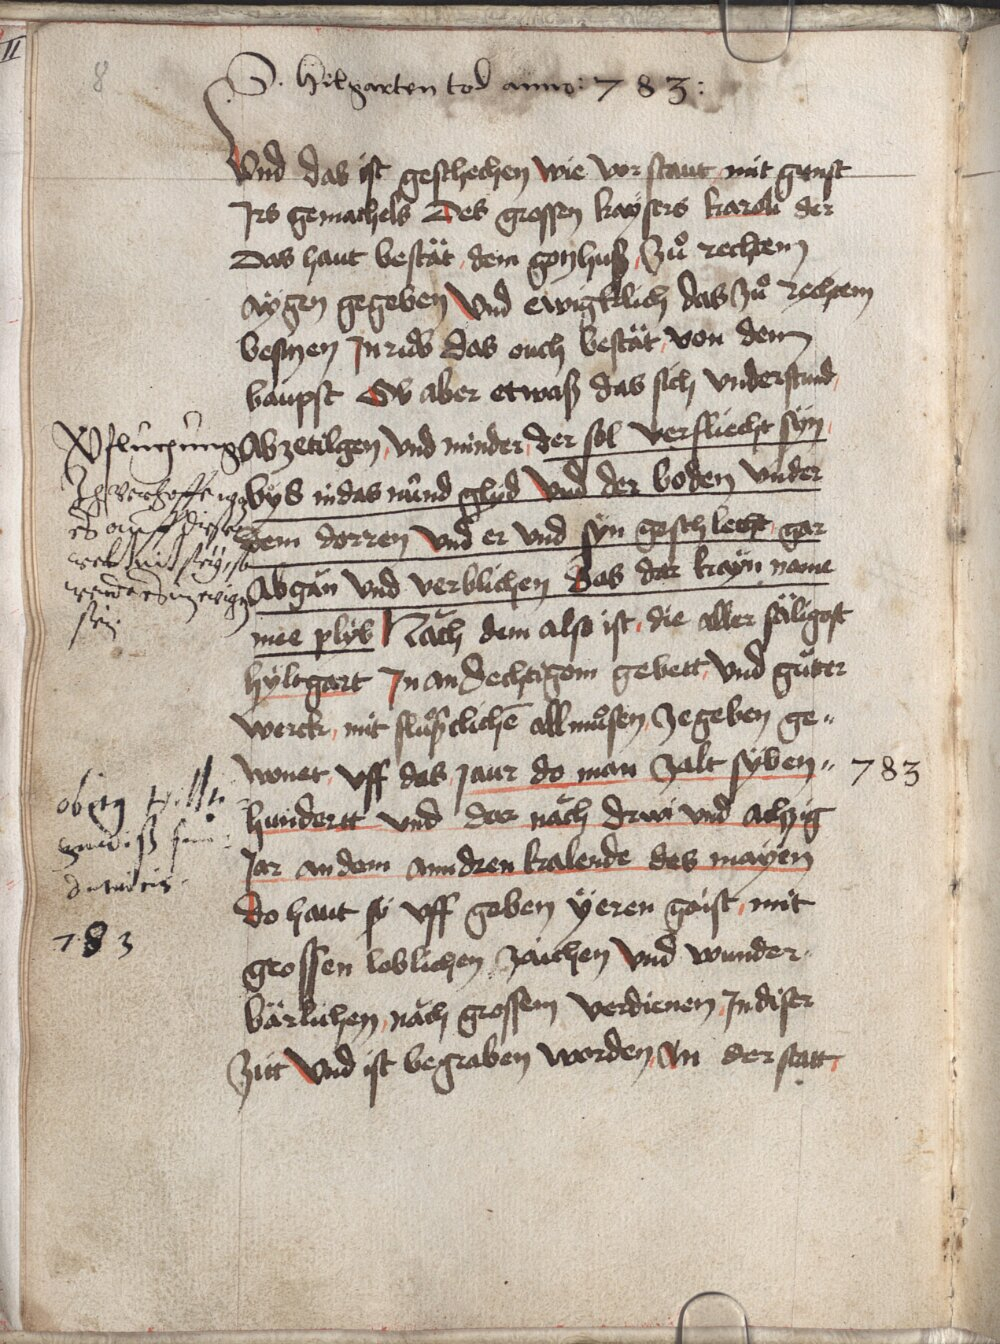 8
S. Hilgarten tod anno: 783:
Vnd das ist geschechen wie vor staut mit gunst
Irs gemachels Des grossen kaysers karoli der
Das haut bestät dem gotzhuß Zuͦ rechtem
aygen gegeben Vnd ewigklich das Zuͦ rechtem
besitzen das ouch bestät von dem
baupst Ob aber etwaß das sich vnderstund
Abzetilgen vnd minder der sol verfliecht syn
byß in das nünd glyd Vnd der boden vnder
dem dorren Vnd er vnd syn geschlecht gar
Abgän vnd verblichen Das der kayn name
mee plyb Näch dem also ist die aller säligost
hyltgart In andechtigom gebett Vnd guͦter
werck mit allmuͦsen Zegeben ge„
wonet Vff das jaur do man Zalt syben„ 783
hundertt vnd dar näch drwi vnd achzig
Jar an dem anndren kalende des mayen
do haut sy vff geben yeren gaist mit
grossen loblichen Zaichen Vnd wunder
bärlichen näch grossem verdienen In diser
Zitt Vnd ist begraben worden An der statt
Verfluchung
Ich verhoffe
es auff diser
welt nit
sein
783